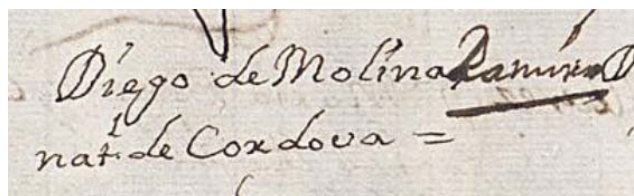 Diego de Molina Ramirez D
nat.l de Cordova =